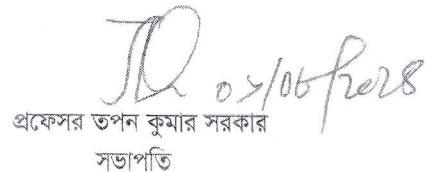 ০১/০৮/২০২৪
প্রফেসর তপন কুমার সরকার
সভাপতি